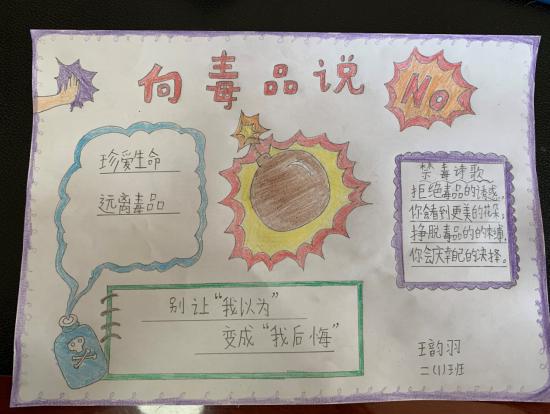 向毒品说
No
珍爱生命
远离毒品
禁毒诗歌
拒绝毒品的诱惑,
你会看到更美的花朵,
挣脱毒品的的束缚,
你会庆幸自己的决择。
别让“我以为”
变成“我后悔”
王韵羽
二(1)班